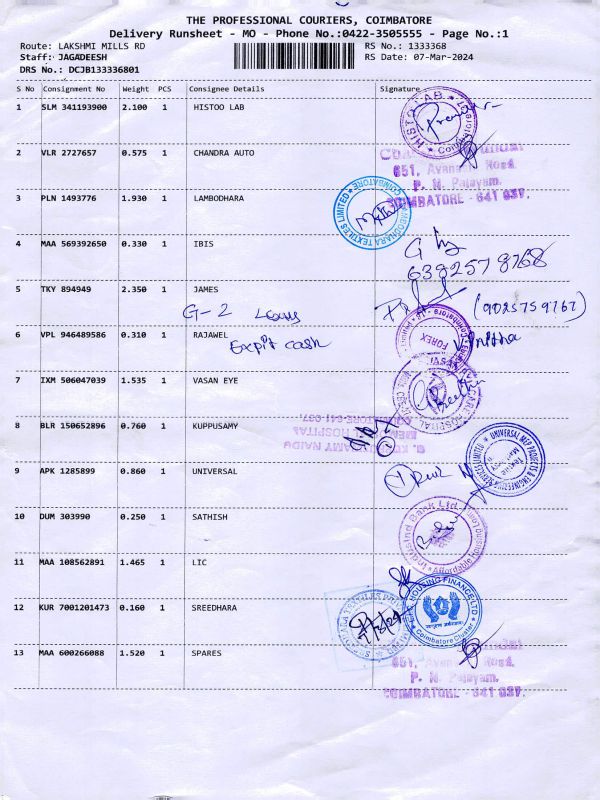 THE PROFESSIONAL COURIERS, COIMBATORE
Delivery Runsheet - MO - Phone No.:0422-3505555 - Page No.:1
Route: LAKSHMI MILLS RD
RS No.: 1333368
Staff: JAGADEESH
RS Date: 07-Mar-2024
DRS No.: DCJB133336801
S No Consignment No Weight PCS Consignee Details Signature
1 SLM 341193900 2.100 1 HISTOO LAB
HISTO LAB
Coimbatore
2 VLR 2727657 0.575 1 CHANDRA AUTO
651, Avanashi Road,
P. N. Palayam,
COIMBATORE - 641 037.
3 PLN 1493776 1.930 1 LAMBODHARA
LAMBODHARA TEXTILES LIMITED COIMBATORE
4 MAA 569392650 0.330 1 IBIS
6382578768
5 TKY 894949 2.350 1 JAMES
G-2
(9025759767)
6 VPL 946489586 0.310 1 RAJAWEL
cash
FOREX
7 IXM 506047039 1.535 1 VASAN EYE
8 BLR 150652896 0.760 1 KUPPUSAMY
HOSPITAL
9 APK 1285899 0.860 1 UNIVERSAL
UNIVERSAL MEP PROJECTS & ENGINEERING SERVICES LIMITED
10 DUM 303990 0.250 1 SATHISH
IndusInd Bank Ltd.
Affordable Housing Loan
11 MAA 108562891 1.465 1 LIC
12 KUR 7001201473 0.160 1 SREEDHARA
HOUSING FINANCE LTD
Coimbatore Cluster
13 MAA 600266088 1.520 1 SPARES
651, Avanashi Road,
P. N. Palayam,
COIMBATORE - 641 037.